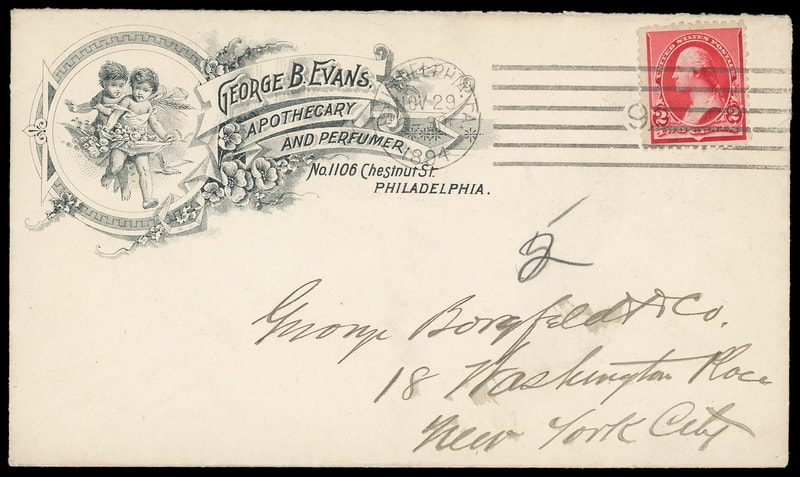 GEORGE B. EVANS.
APOTHECARY
AND PERFUMER,
No. 1106 Chestnut St.
PHILADELPHIA.
NOV 29
1894
UNITED STATES POSTAGE
2 2
5
George Borgfeldt & Co.
18 Washington Place
New York City